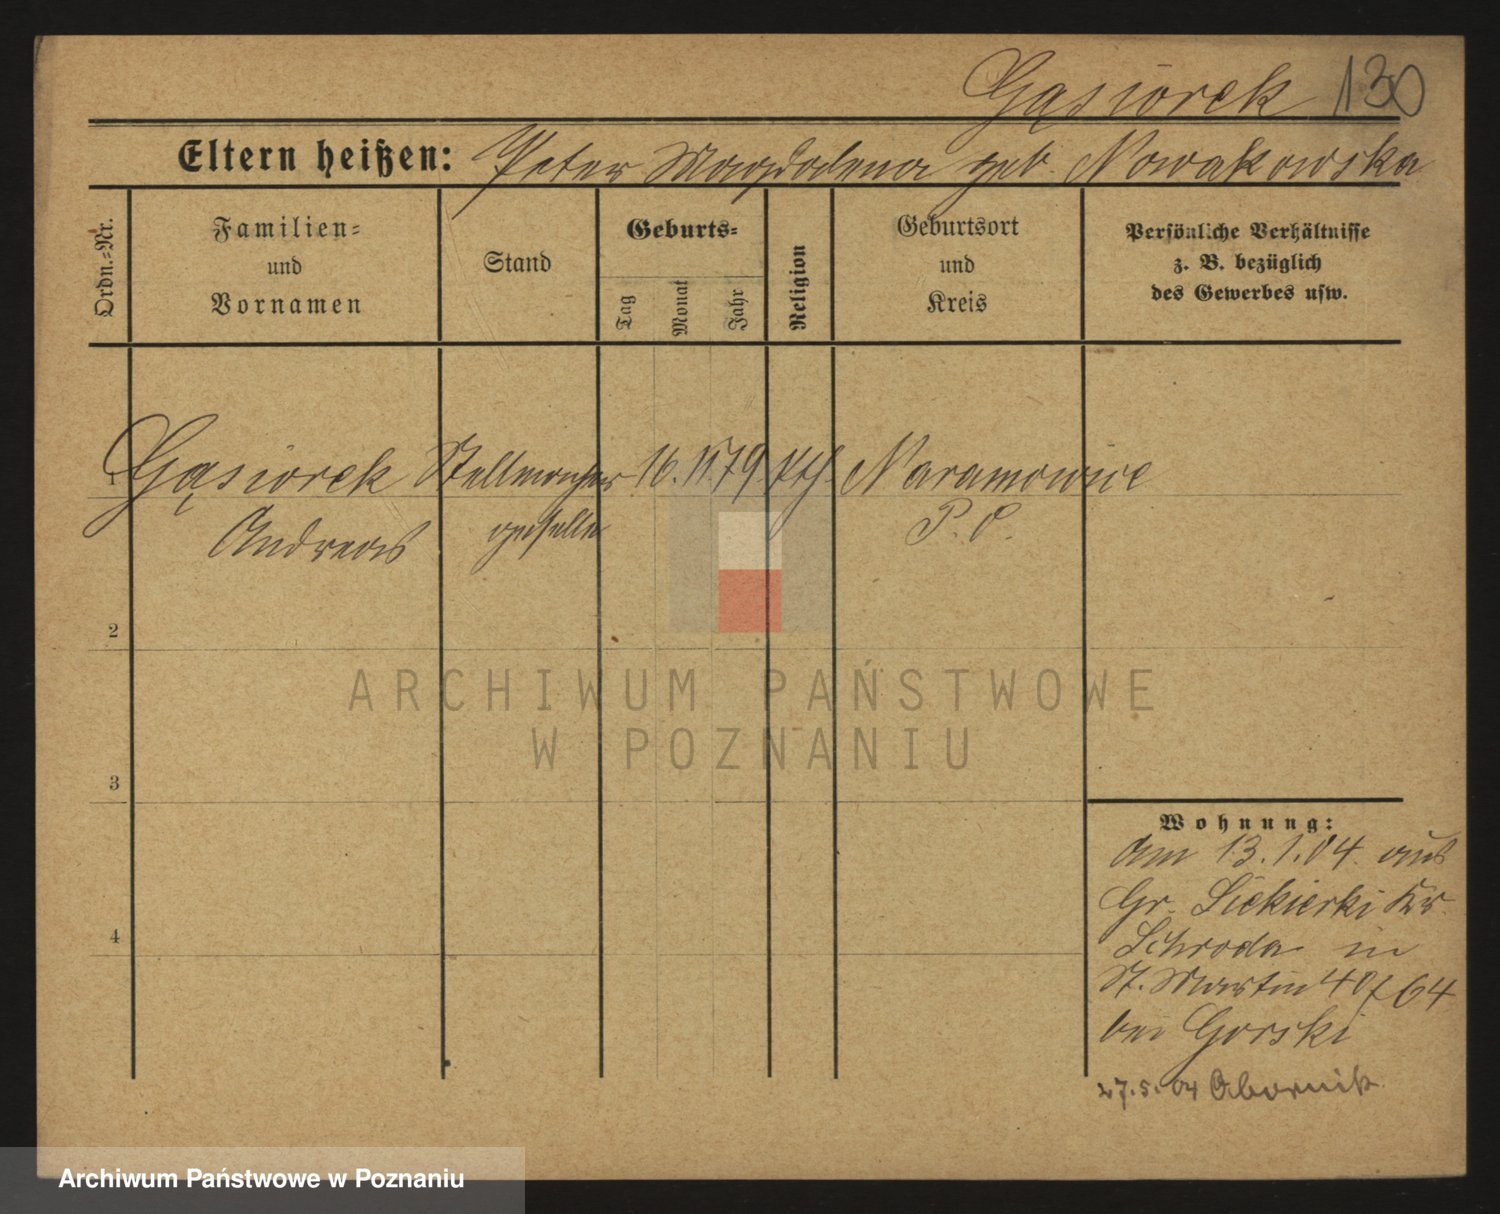 Gąsiorek 130
Eltern heißen: Peter Magdalena geb. Nowakowska
Ordn.-Nr.
Familien-
und
Vornamen
Stand
Geburts-
Tag
Monat
Jahr
Religion
Geburtsort
und
Kreis
Persönliche Verhältnisse
z. B. bezüglich
des Gewerbes usw.
1 Gąsiorek Stellmacher 16. 11. 79 kth. Naramowice
Andreas geselle P. O.
2
3
4
Wohnung:
Am 13.1.04. aus
Gr. Siekierki Kr.
Schroda in
St. Martin 40 / 64
bei Gorski
27.5.04 Obornik
ARCHIWUM PAŃSTWOWE
W POZNANIU
Archiwum Państwowe w Poznaniu